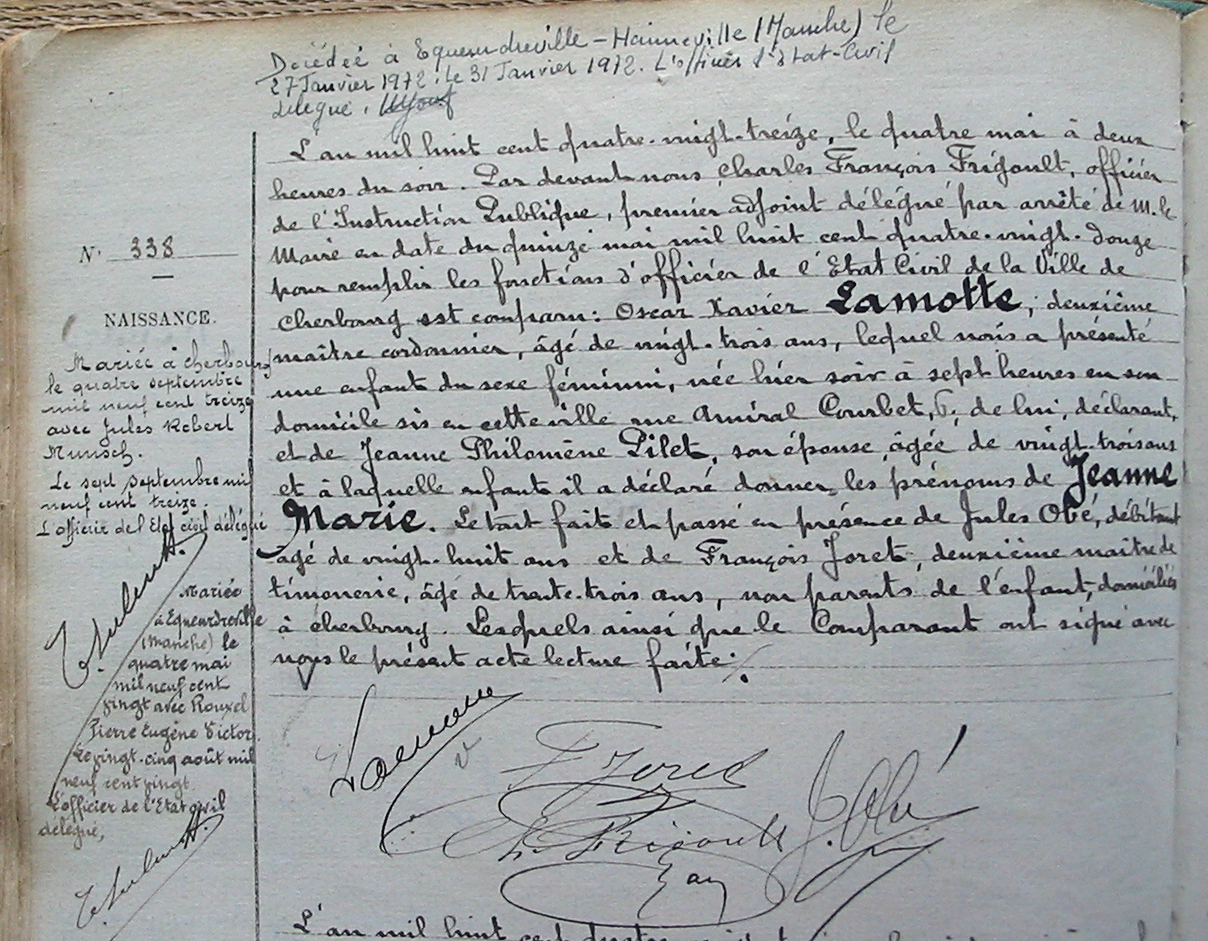 Décédée à Equeurdreville-Hainneville (Manche) le
27 Janvier 1972. Le 31 Janvier 1972. L'officier d'état-Civil
délégué.
N° 338
NAISSANCE.
Mariée à Cherbourg
le quatre septembre
mil neuf cent treize
avec Jules Robert
Munsch.
Le sept septembre mil
neuf cent treize.
L'officier de l'Etat civil délégué
Mariée
à Equeurdreville
(Manche) le
quatre mai
mil neuf cent
vingt avec Rouxel
Pierre Eugène Victor.
Le vingt-cinq août mil
neuf cent vingt.
L'officier de l'Etat civil
délégué,
L'an mil huit cent quatre-vingt-treize, le quatre mai à deux
heures du soir. Par devant nous, Charles François Frigoult, officier
de l'Instruction Publique, premier adjoint délégué par arrêté de M. le
Maire en date du quinze mai mil huit cent quatre-vingt-douze
pour remplir les fonctions d'officier de l'Etat Civil de la Ville de
Cherbourg est comparu: Oscar Xavier Lamotte, deuxième
maître cordonnier, âgé de vingt-trois ans, lequel nous a présenté
une enfant du sexe féminin, née hier soir à sept heures en son
domicile sis en cette ville rue Amiral Courbet, 6, de lui, déclarant,
et de Jeanne Philomène Pilet, son épouse, âgée de vingt-trois ans
et à laquelle enfant il a déclaré donner les prénoms de Jeanne
Marie. Le tout fait et passé en présence de Jules Obé, débitant
âgé de vingt-huit ans et de François Joret, deuxième maître de
timonerie, âgé de trente-trois ans, non parents de l'enfant, domiciliés
à Cherbourg. Lesquels ainsi que le Comparant ont signé avec
nous le présent acte lecture faite.
Lamotte
F Joret
J. Obé
Ch. Frigoult
L'an mil huit cent quatre